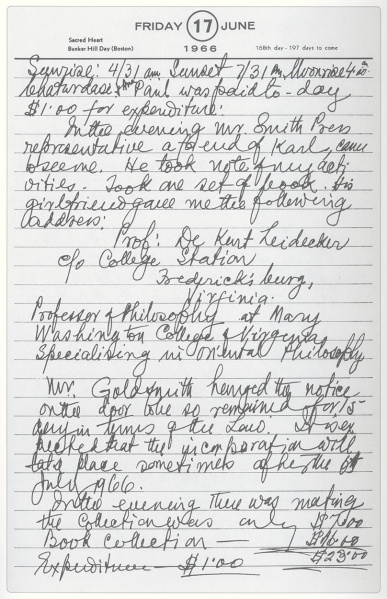 FRIDAY 17 JUNE
Sacred Heart
Bunker Hill Day (Boston)
1966
168th day - 197 days to come
Sunrise: 4/31 am Sunset 7/31 Moonrise 4
Paul was paid to-day
$1.00 for expenditure.
In the evening Mr. Smith Press
representative a friend of Karl, came
to see me. He took note of my acti
vities. Took one set of book. His
girlfriend gave me the following
address:
Prof: Dr Kurt Leidecker
c/o College Station
Frederick's burg,
Virginia.
Professor of Philosophy at Mary
Washington College of Virginia
Specialising in oriental Philosophy
Mr. Goldsmith hanged the notice
on the door to be so remained for 15
days in terms of the Law. It is ex
pected that the incorporation will
take place sometimes after the 6th
July 1966.
In the evening there was meeting
the collection was only $7.00
Book collection — $16.00
Expenditure — $1.00 $23.00